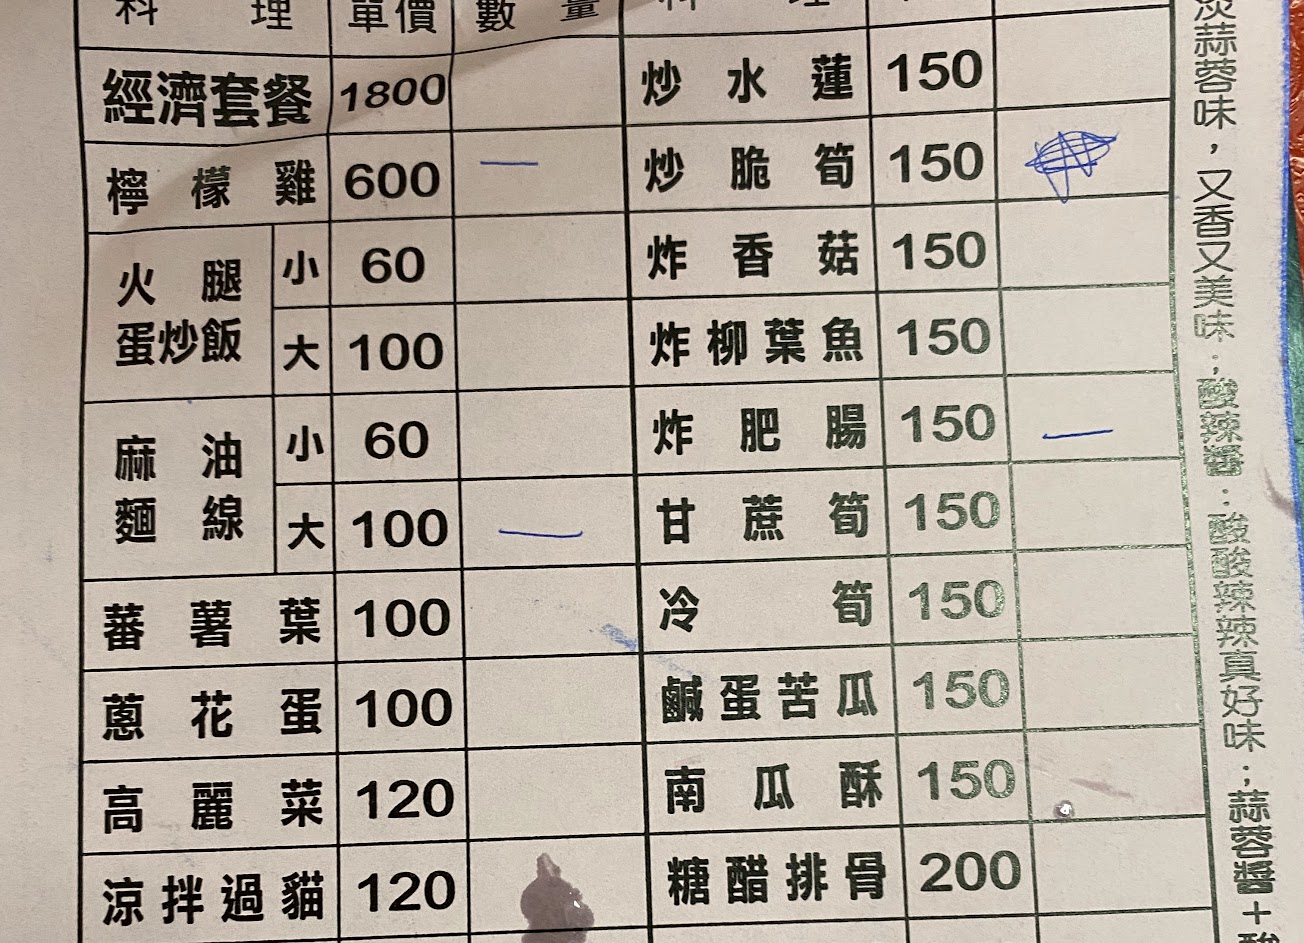 料理 單價 數量
經濟套餐 1800
檸檬雞 600 一
火腿蛋炒飯 小 60
大 100
麻油麵線 小 60
大 100 一
蕃薯葉 100
蔥花蛋 100
高麗菜 120
涼拌過貓 120
料理
炒水蓮 150
炒脆筍 150
炸香菇 150
炸柳葉魚 150
炸肥腸 150 一
甘蔗筍 150
冷筍 150
鹹蛋苦瓜 150
南瓜酥 150
糖醋排骨 200
蒜蓉味，又香又美味；酸辣醬：酸酸辣辣真好味；蒜蓉醬＋酸